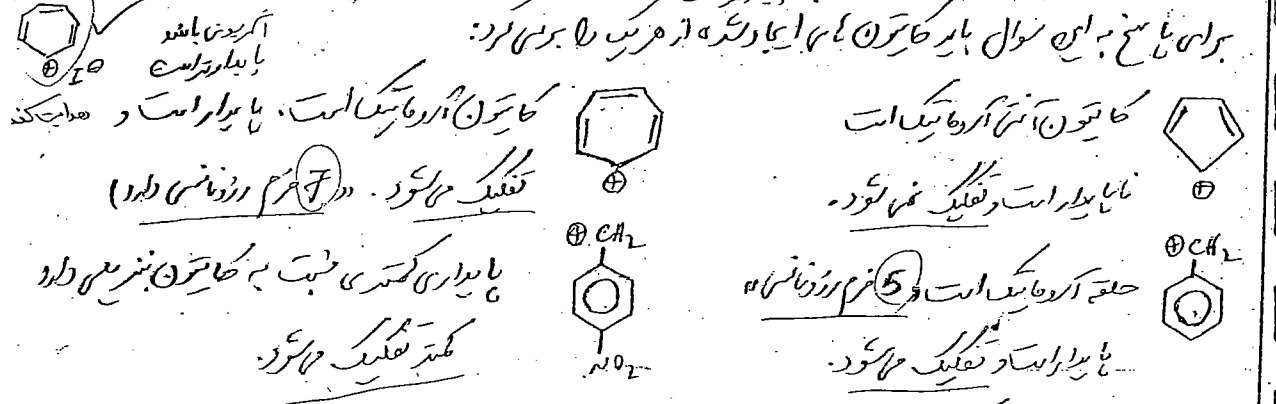 برای پاسخ به این سوال باید کاتیون های ایجاد شده از هر یک را بررسی کرد:
اگر یونی باشد
پایدارتر است
⊕ I⊖
هدایت کند
کاتیون آنتی آروماتیک است
ناپایدار است و تفکیک نمی شود.
⊕
کاتیون آروماتیک است، پایدار است و
تفکیک می شود. (7 فرم رزونانسی دارد)
⊕
⊕CH2
حلقه آروماتیک است و 5 فرم رزونانسی
پایدار است و تفکیک می شود.
⊕CH2
پایداری کمتری نسبت به کاتیون بنزیلی دارد
کمتر تفکیک می شود.
NO2